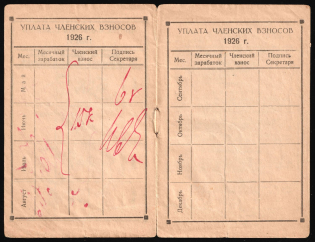 УПЛАТА ЧЛЕНСКИХ ВЗНОСОВ
1926 г.
Мес.
Месячный заработок
Членский взнос
Подпись Секретаря
Май
Июнь
Июль
Август
УПЛАТА ЧЛЕНСКИХ ВЗНОСОВ
1926 г.
Мес.
Месячный заработок
Членский взнос
Подпись Секретаря
Сентябрь
Октябрь
Ноябрь
Декабрь